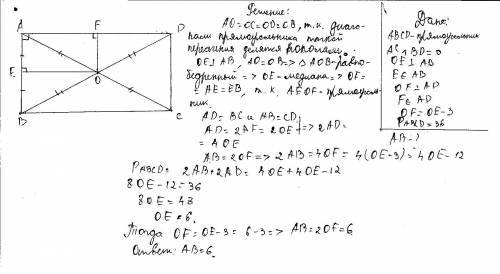 A F D
E O
B C
Решение:
AO=OC=OD=OB, т.к. диаго-
нали прямоугольника точкой
пересечения делятся пополам.
OE⊥AB, AO=OB=>△AOB-равно-
бедренный => OE-медиана=>OF=
=AE=EB, т.к. AEOF-прямоуголь-
ник.
AD=BC и AB=CD
AD=2AF=2OE=>2AD=
=4OE
AB=2OF=>2AB=4OF=4(OE-3)=4OE-12
PABCD=2AB+2AD=4OE+4OE-12
8OE-12=36
8OE=48
OE=6.
Тогда OF=OE-3=6-3=>AB=2OF=6
Ответ: AB=6.
Дано:
ABCD-прямоугольник
AC∧BD=O
OE⊥AB
E∈AB
OF⊥AD
F∈AD
OF=OE-3
PABCD=36
AB-?